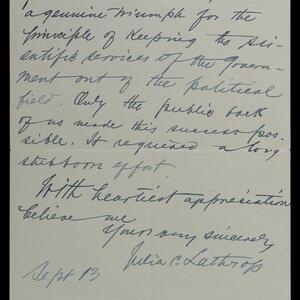 a genuine triumph for the
principle of keeping the sci-
entific services of the Govern-
ment out of the political
field. Only the public back
of us made this success pos-
sible. It required a long
stubborn effort.
With heartiest appreciation
believe me
Yours very sincerely
Julia C. Lathrop
Sept 13